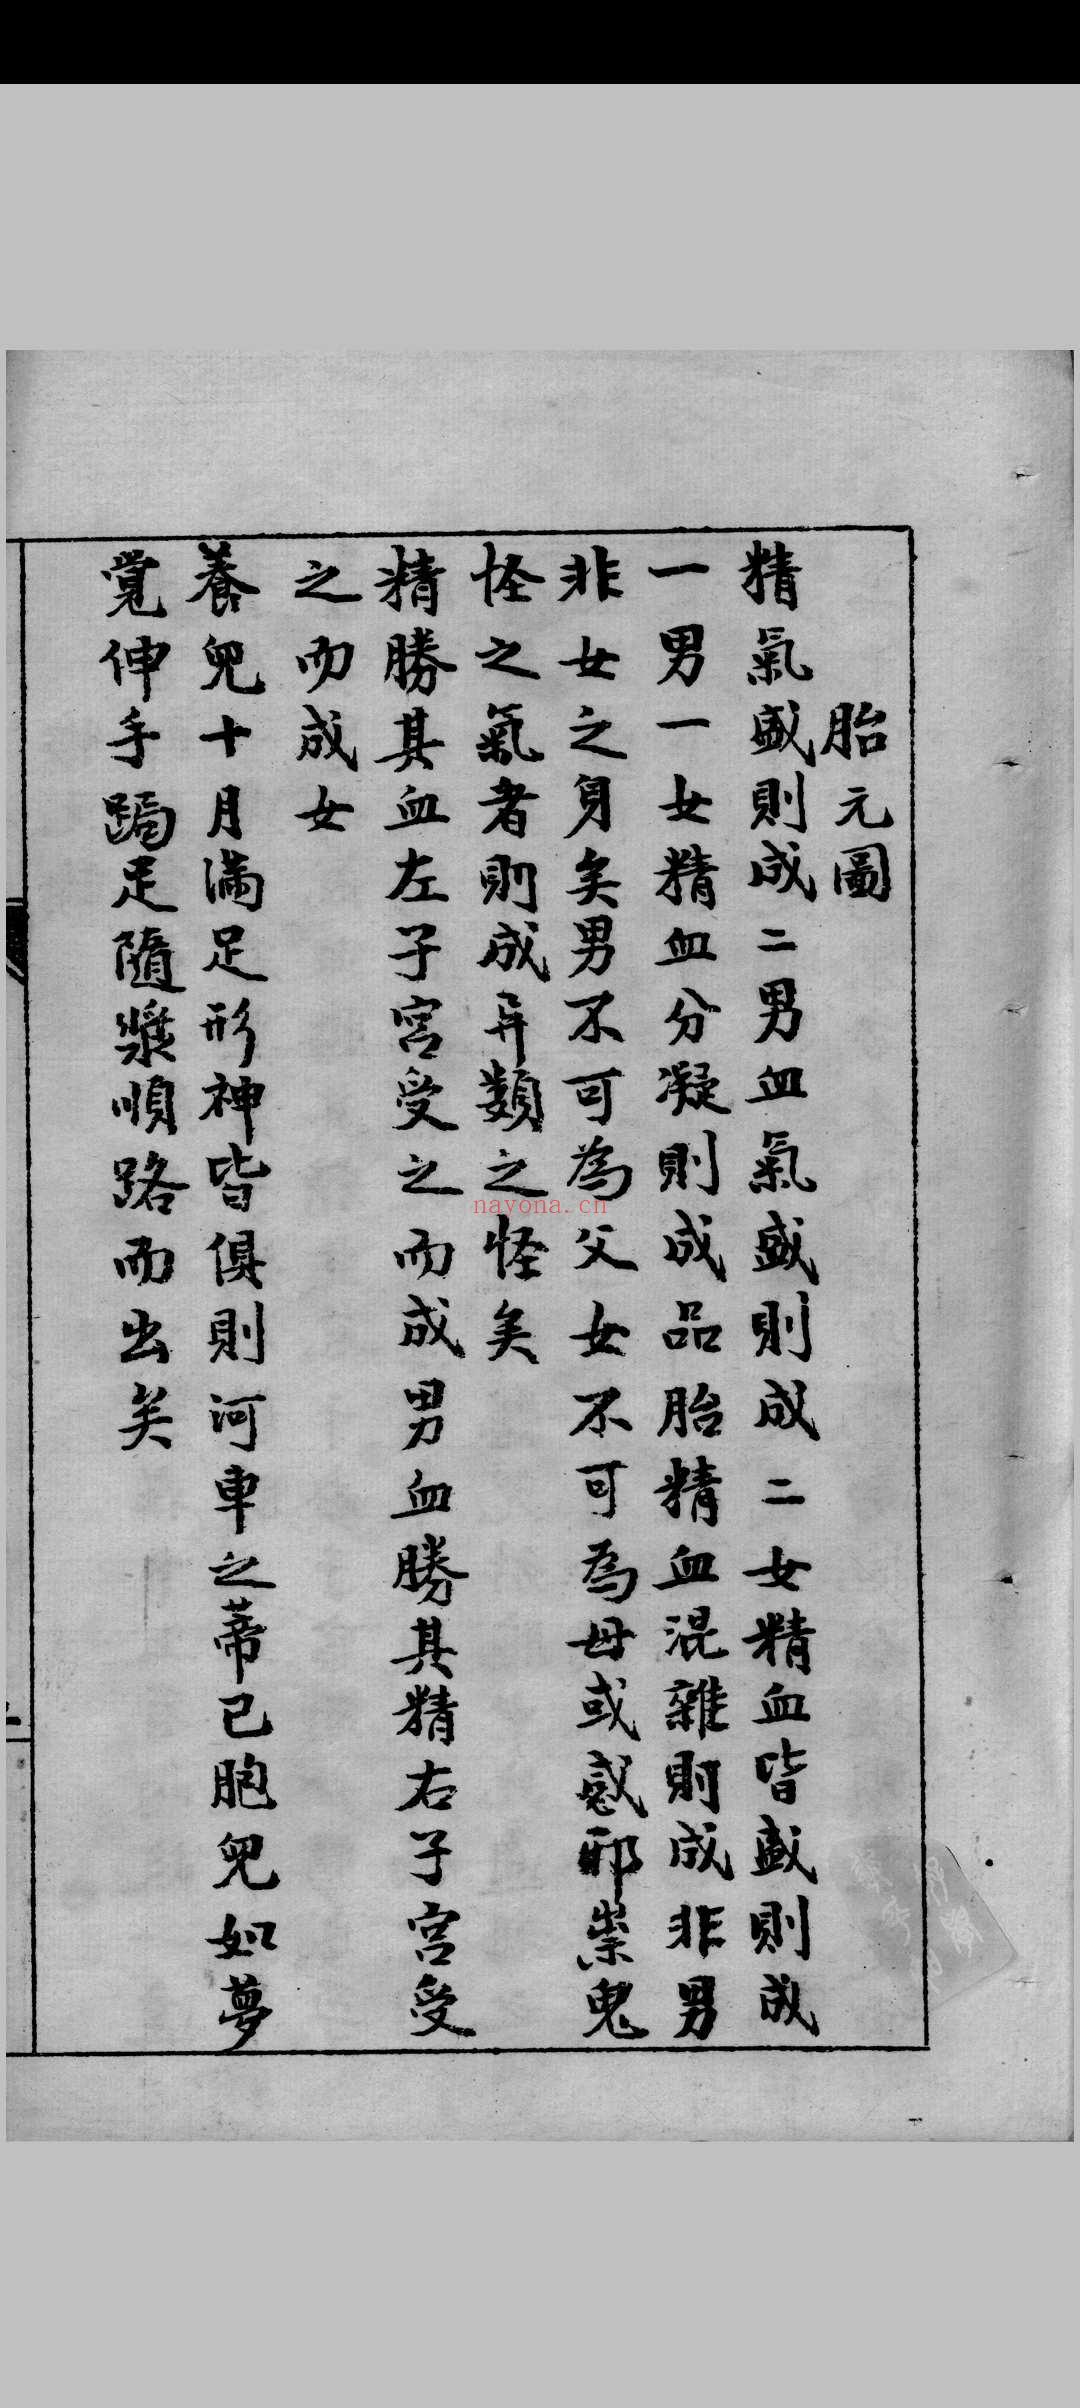 胎元圖
精氣盛則成二男血氣盛則成二女精血皆盛則成
一男一女精血分凝則成品胎精血混雜則成非男
非女之身矣男不可為父女不可為母或感邪祟鬼
怪之氣者則成异類之怪矣
精勝其血左子宮受之而成男血勝其精右子宮受
之而成女
養兒十月滿足形神皆俱則河車之蒂已胞兒如夢
覺伸手跼足隨漿順路而出矣
nayona.cn